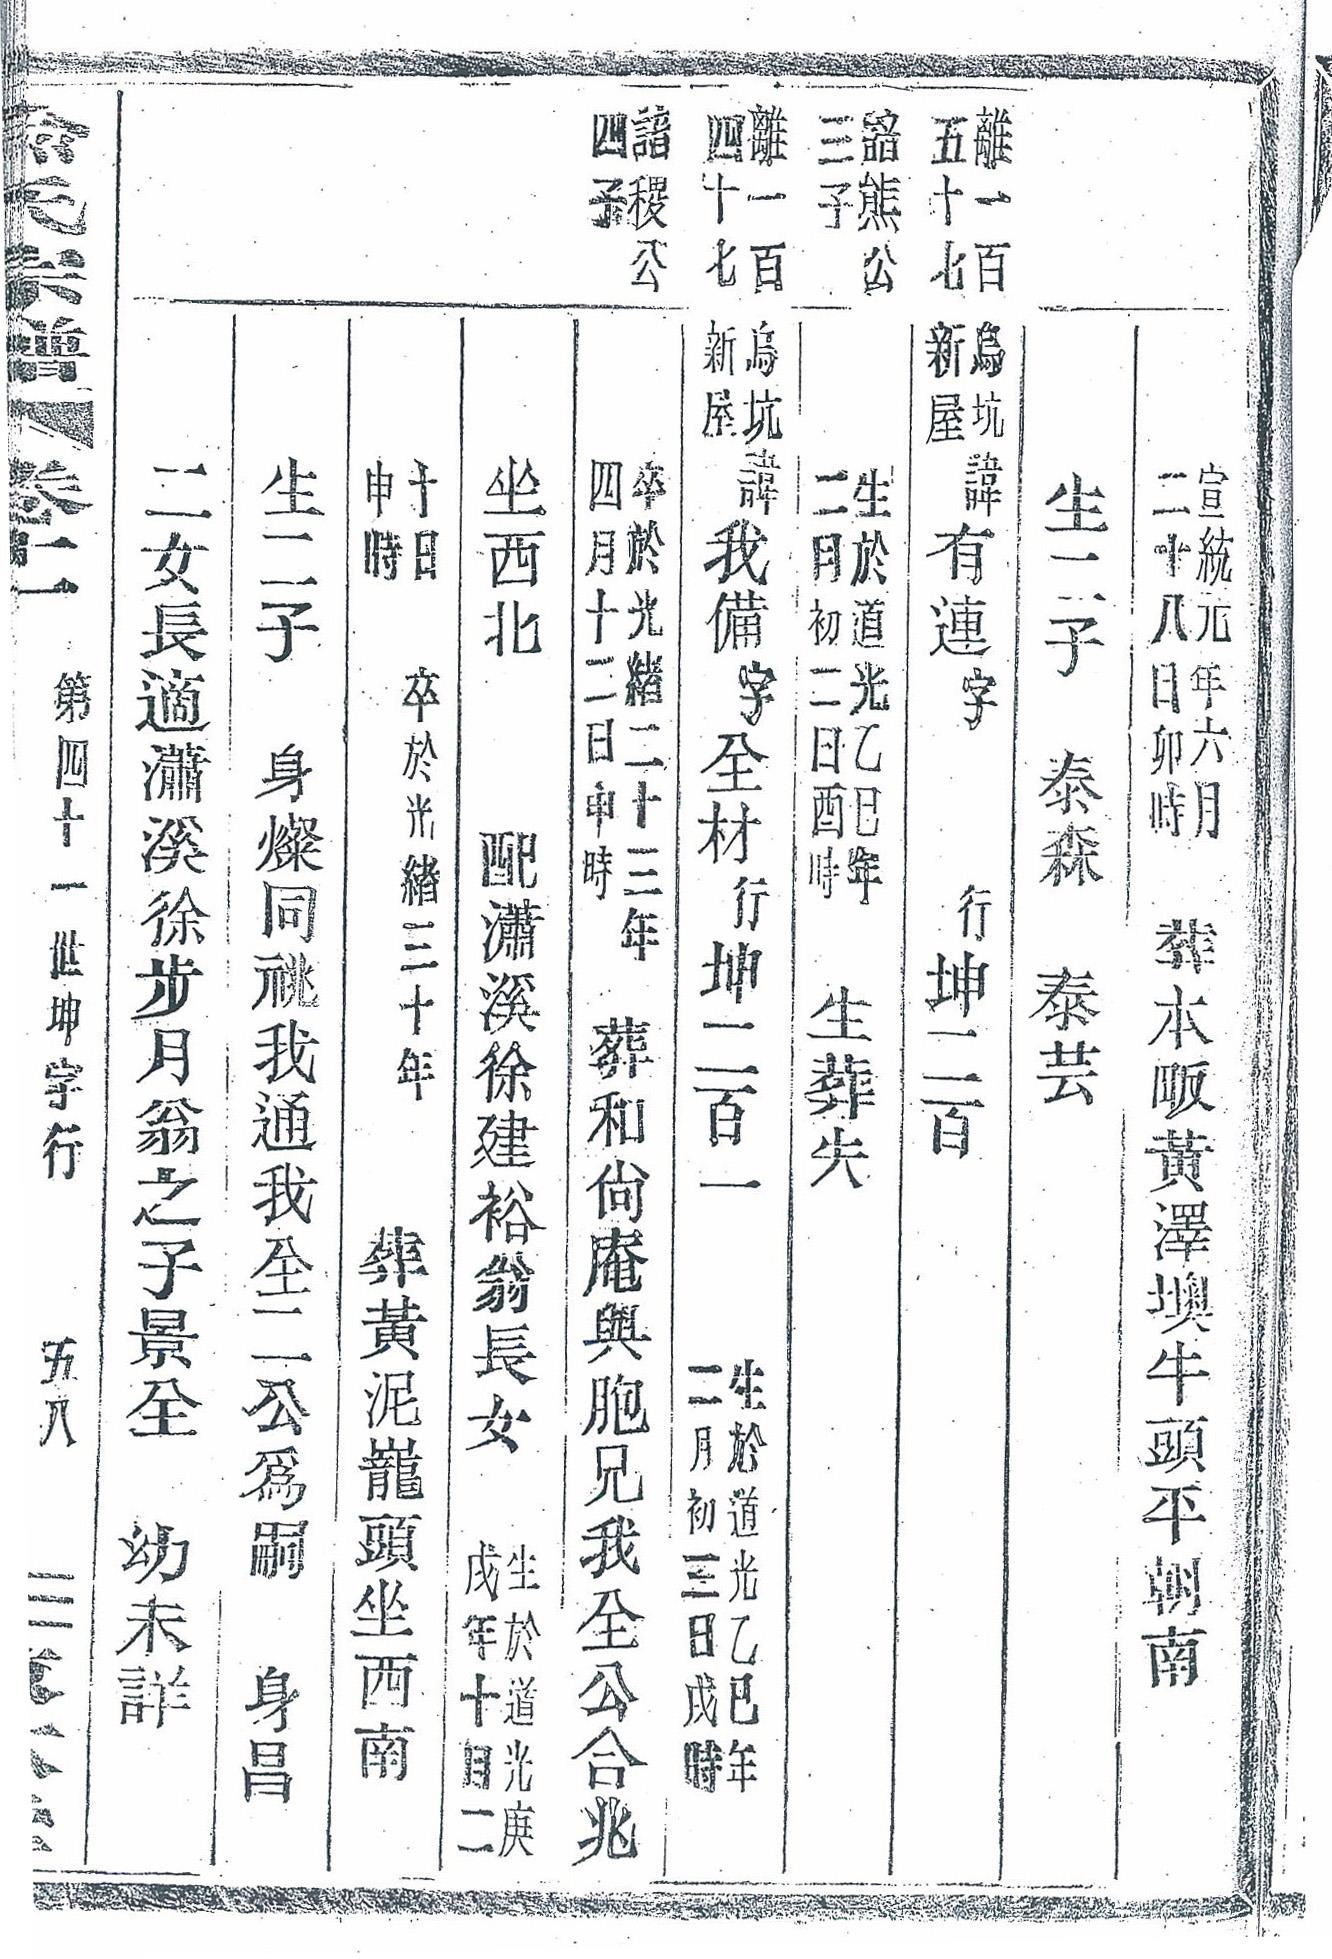 宣統元年六月
二十八日卯時
葬本畈黃澤墺牛頭平朝南
生二子 泰森 泰芸
離一百
五十七
烏坑
新屋
諱有連字 行坤二百
諮熊公
三子
生於道光乙巳年
二月初二日酉時
生葬失
離一百
四十七
烏坑
新屋
諱我備字全材行坤二百一
生於道光乙巳年
二月初三日戌時
諳稷公
四子
卒於光緒二十三年
四月十二日申時
葬和尙庵與胞兄我全公合兆
坐西北 配瀟溪徐建裕翁長女
生於道光庚
戌年十月二
十日
申時
卒於光緒三十年
葬黃泥巃頭坐西南
生二子 身燦同祧我通我全二公爲嗣 身昌
二女長適瀟溪徐步月翁之子景全 幼未詳
氏宗譜 卷二 第四十一世坤字行 五八 三